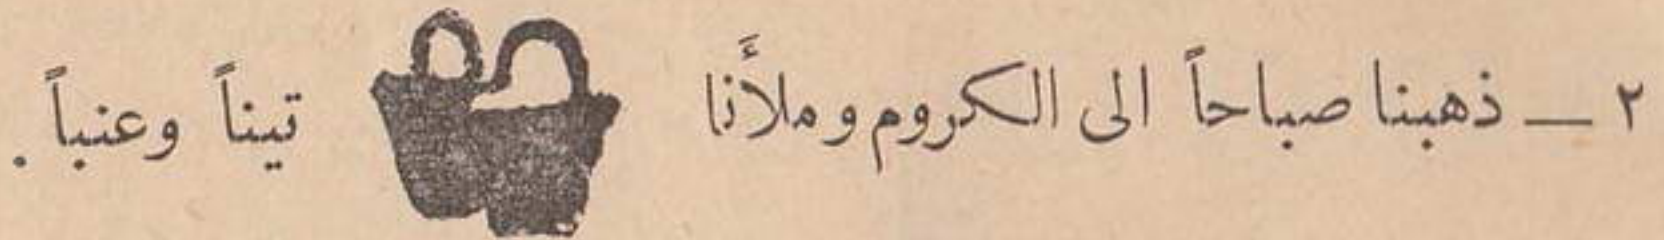 ٢ — ذهبنا صباحاً الى الكروم وملأنا تيناً وعنباً .